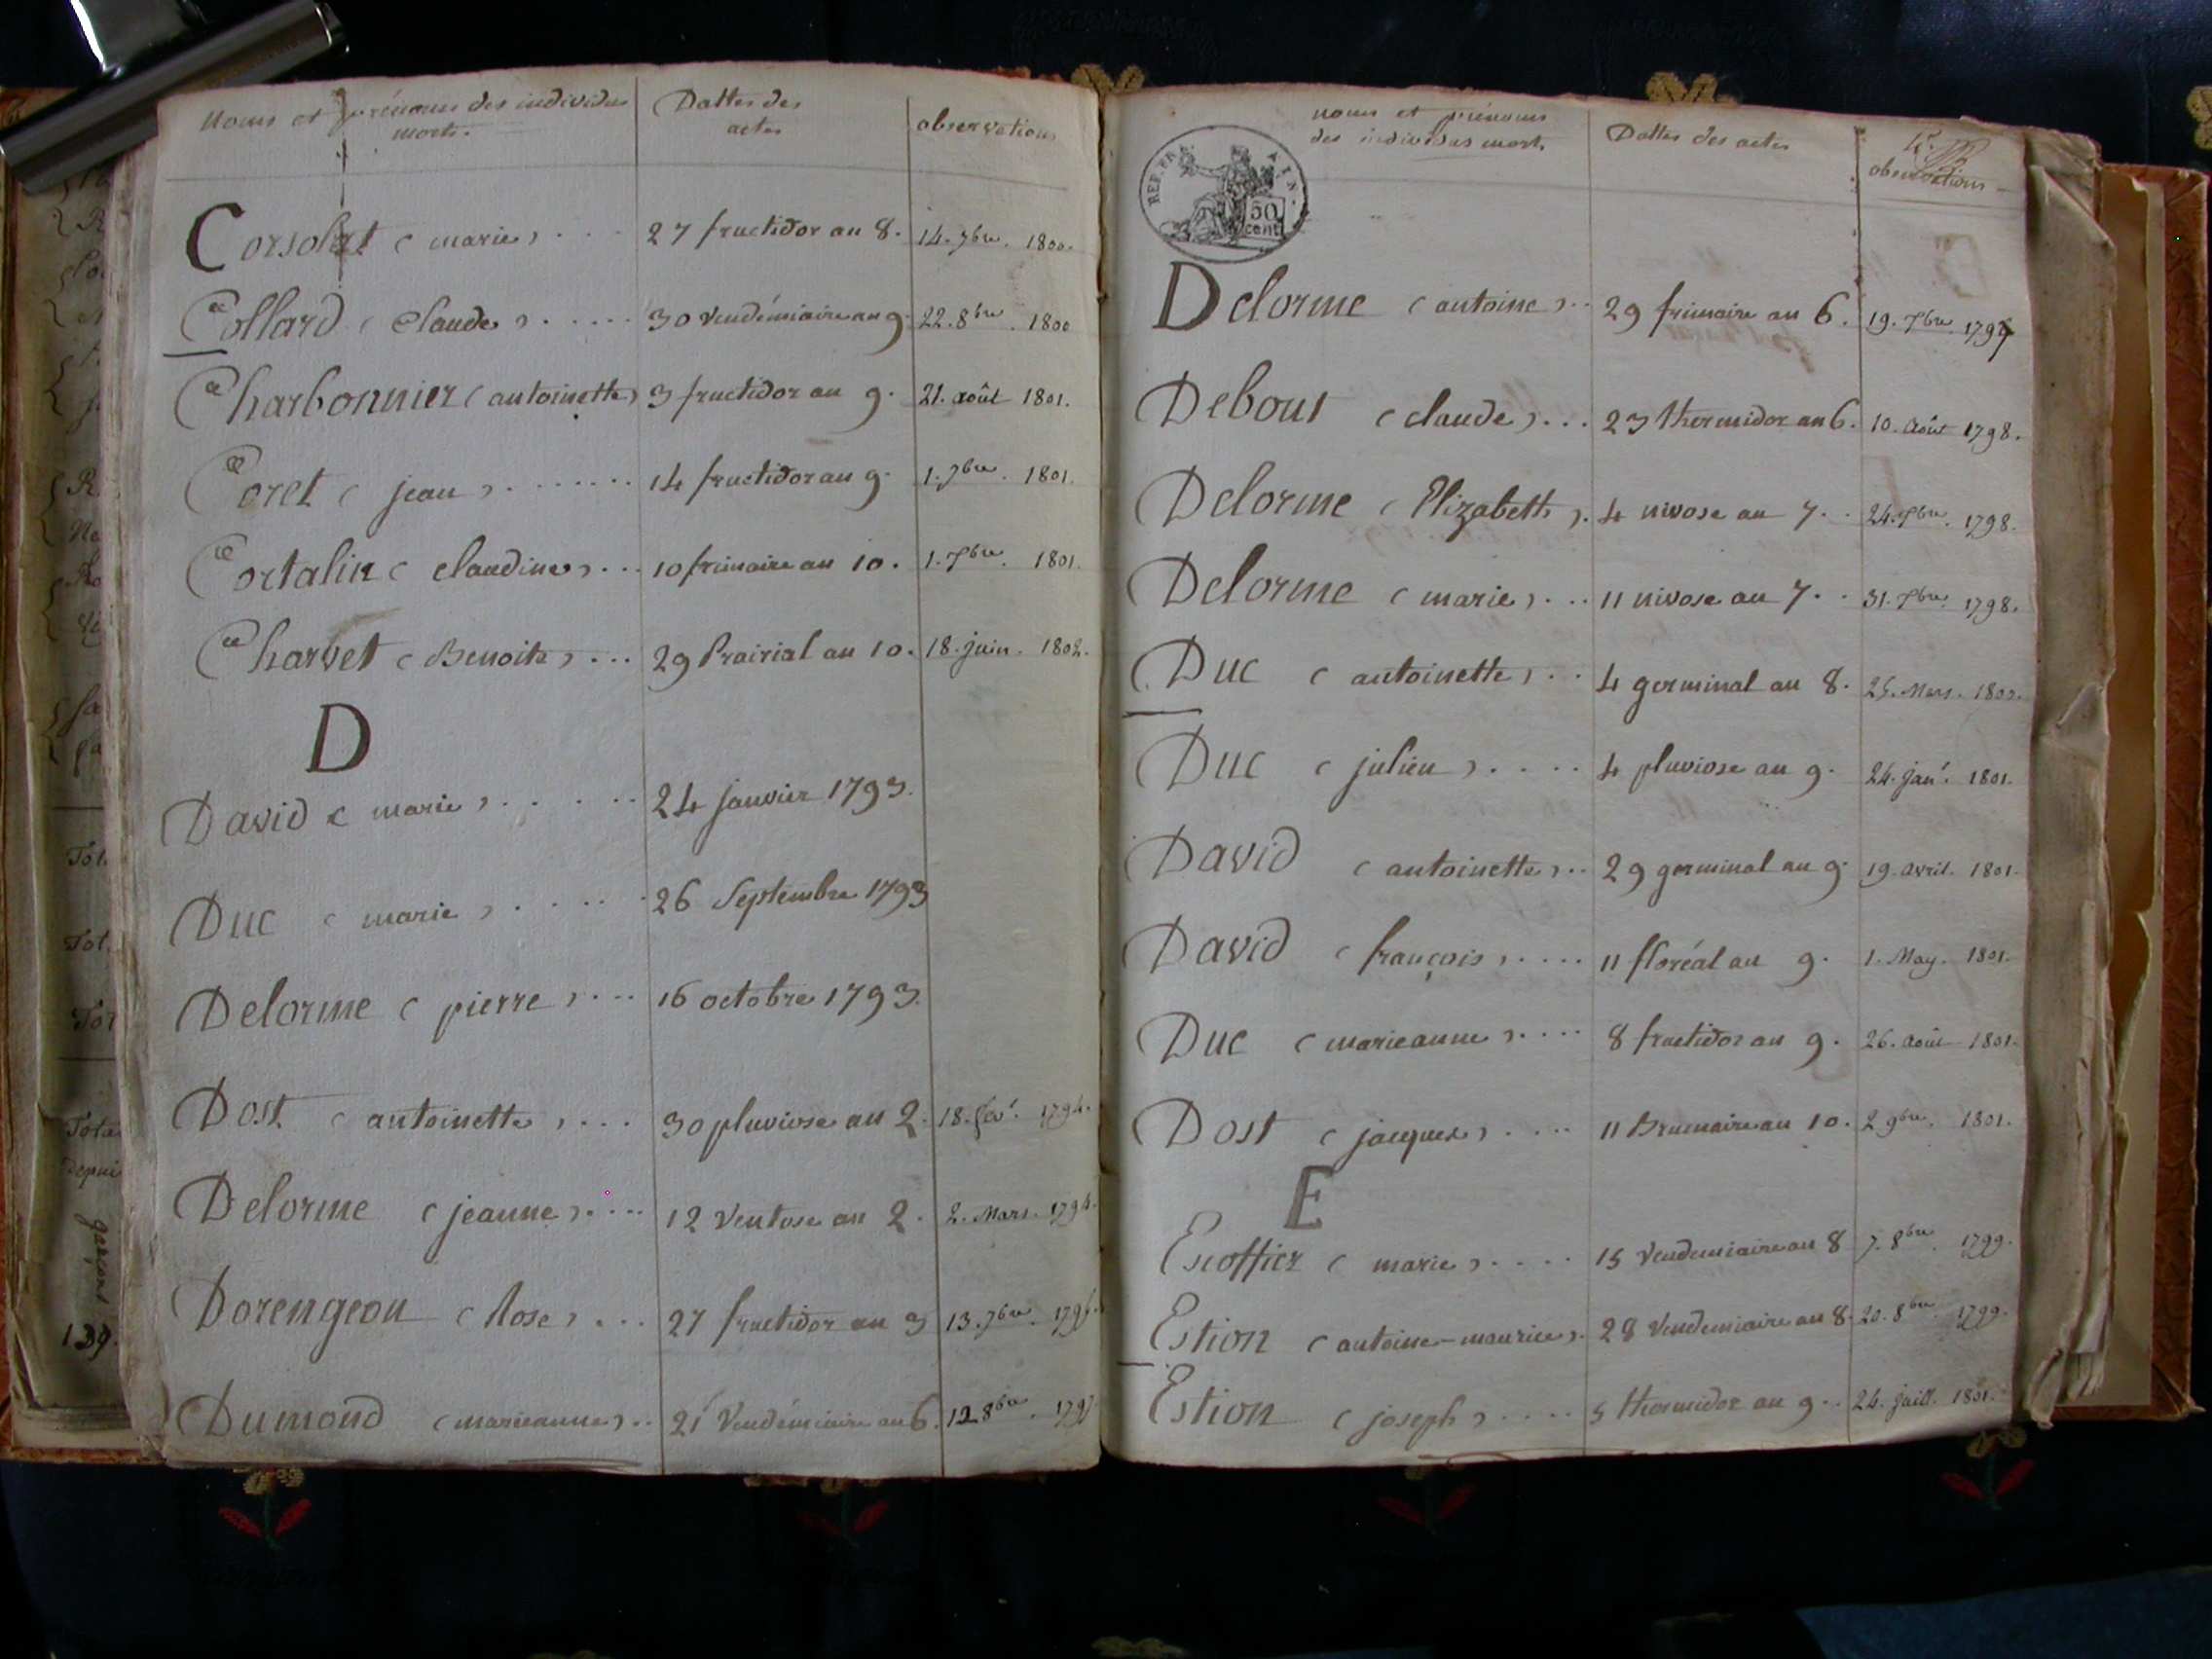 Noms et prénoms des individus
morts.
Dattes des
actes
observations
Corsolat (marie) . . . 27 fructidor an 8. 14. 7bre. 1800.
Collard (Claude) . . . . . 30 vendémiaire an 9. 22. 8bre. 1800
Charbonnier (antoinette) 3 fructidor an 9. 21. août 1801.
Coret (jean) . . . . . . . 14 fructidor an 9. 1. 7bre. 1801.
Cortalin (claudine) . . . 10 frimaire an 10. 1. Xbre. 1801.
Charvet (Benoite) . . . 29 Prairial an 10. 18. juin. 1802.
D
David (marie) . . . . . 24 janvier 1793.
Duc (marie) . . . . . 26 Septembre 1793
Delorme (pierre) . . . 16 octobre 1793.
Dost (antoinette) . . . 30 pluviose an 2. 18. fév. 1794.
Delorme (jeanne) . . . . 12 Ventose an 2. 2. Mars. 1794.
Dorengeon (Rose) . . . 27 fructidor an 3 13. 7bre. 1795.
Dumond (marieanne) . . 21 Vendémiaire an 6. 12 8bre. 1797
noms et prénoms
des individus mort.
Dattes des actes
observations
REP. FRA. AIN.
50
cent
Delorme (antoine) . . 29 frimaire an 6. 19. Xbre. 1797
Debout (claude) . . . 23 thermidor an 6. 10. Août 1798.
Delorme (Elizabeth). 4 nivose an 7. . 24. Xbre. 1798.
Delorme (marie) . . . 11 nivose an 7. . 31. Xbre. 1798.
Duc (antoinette) . . . 4 germinal an 8. 25. Mars. 1800.
Duc (julien) . . . . 4 pluviose an 9. 24. janr. 1801.
David (antoinette) . . 29 germinal an 9. 19. avril. 1801.
David (françois) . . . . 11 floréal an 9. 1. May. 1801.
Duc (marieanne) . . . . 8 fructidor an 9. 26. août 1801.
Dost (jacques) . . . . 11 Brumaire an 10. 2 9bre. 1801.
E
Escoffier (marie) . . . . 15 Vendemiaire an 8 7. 8bre. 1799.
Estion (antoine-maurice). 28 Vendemiaire an 8. 20. 8bre. 1799.
Estion (joseph) . . . . 5 thermidor an 9. . 24. juill. 1801.